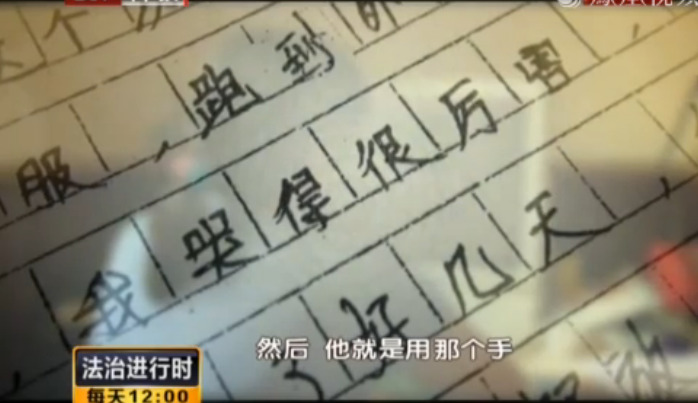 这个
服，跑到
我哭得很厉害，
了好几天，
然后 他就是用那个手
法治进行时
每天12:00